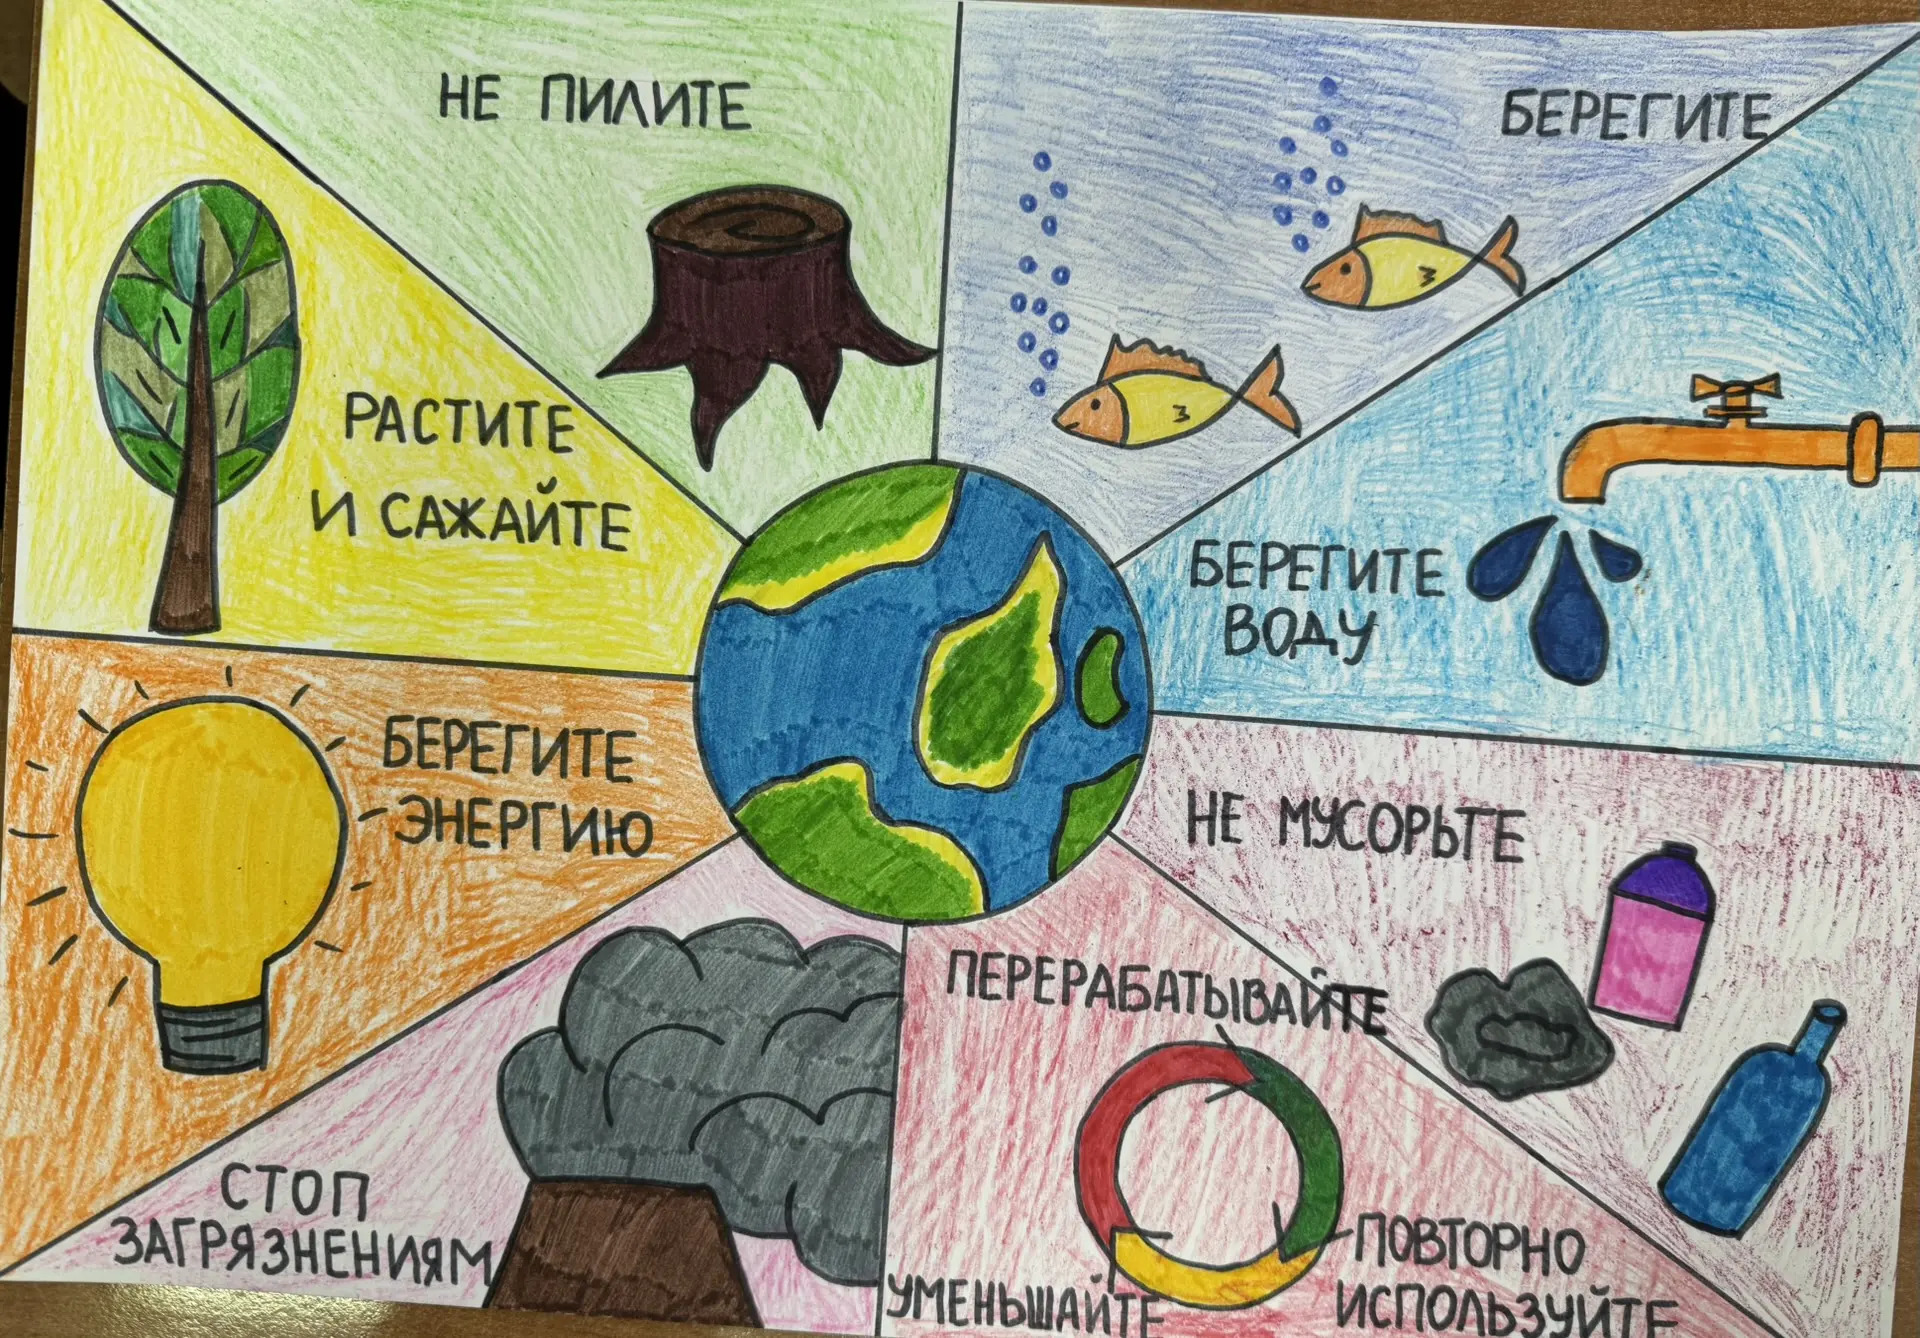 НЕ ПИЛИТЕ
БЕРЕГИТЕ
РАСТИТЕ
И САЖАЙТЕ
БЕРЕГИТЕ
ВОДУ
БЕРЕГИТЕ
ЭНЕРГИЮ
НЕ МУСОРЬТЕ
СТОП
ЗАГРЯЗНЕНИЯМ
ПЕРЕРАБАТЫВАЙТЕ
УМЕНЬШАЙТЕ
ПОВТОРНО
ИСПОЛЬЗУЙТЕ